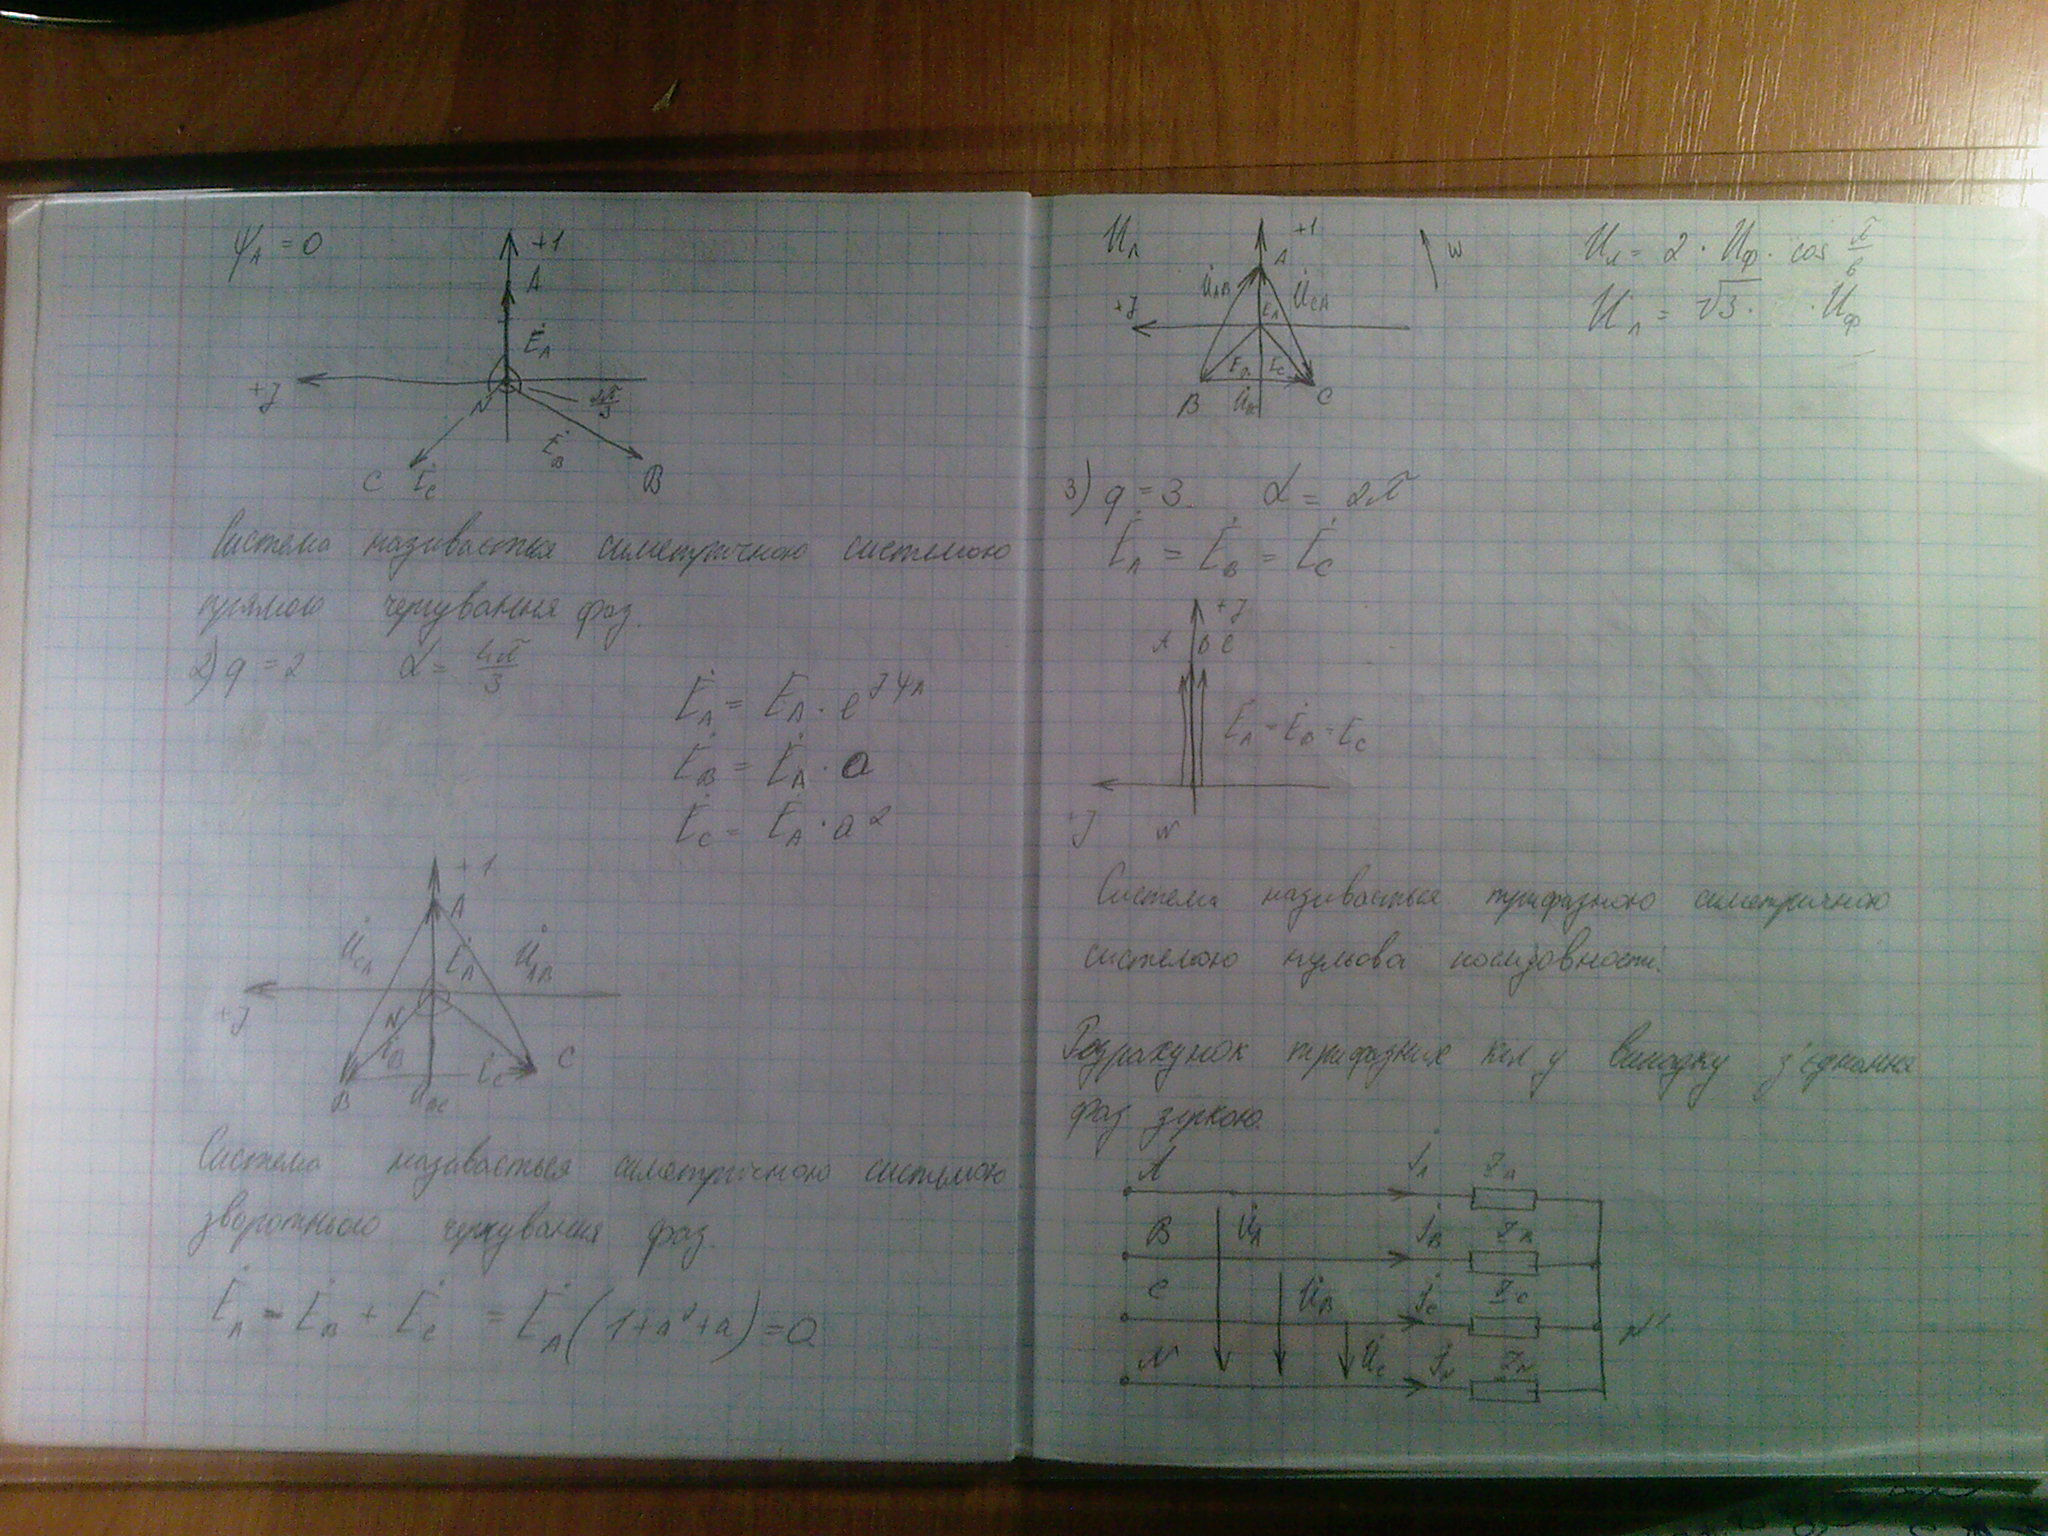 ψ_A = 0
+1
A
Ė_A
+J
N
2π/3
Ė_B
C Ė_C
B
Система називається симетричною системою
прямого чергування фаз.
2) q = 2 α = 4π/3
Ė_A = E_A · e^{Jψ_A}
Ė_B = Ė_A · a
Ė_C = Ė_A · a²
+1
A
U̇_CA Ė_A U̇_AB
+J
N
Ė_B Ė_C C
B U̇_BC
Система називається симетричною системою
зворотнього чергування фаз.
Ė_A - Ė_B + Ė_C = Ė_A (1 + a² + a) = 0
U_Л
+1
A
U̇_AB U̇_CA
+J E_A
E_B E_C
B U̇_BC C
W
U_Л = 2 · U_ф · cos π/6
U_Л = √3 · · U_ф
3) q = 3. α = 2π
Ė_A = Ė_B = Ė_C
+J
A B C
Ė_A = Ė_B = Ė_C
+J N
Система називається трифазною симетричною
системою нульова послідовності.
Розрахунок трифазних кіл у випадку з'єднання
фаз зіркою.
A İ_A Z_A
B U̇_A İ_B Z_B
C U̇_B İ_C Z_C
N'
N U̇_C İ_N Z_N